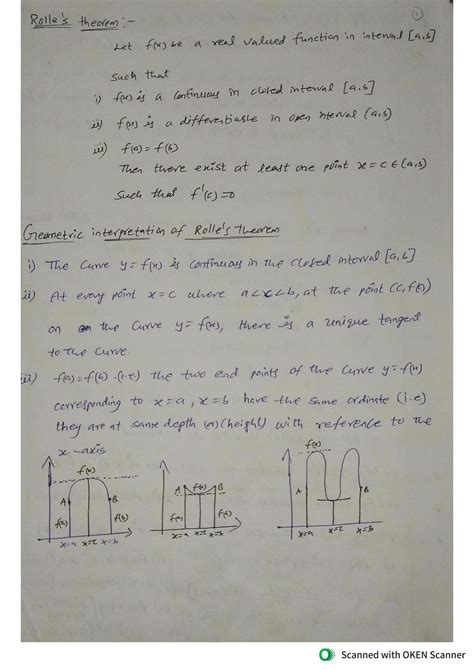 ①
Rolle's theorem:-
Let f(x) be a real valued function in interval [a,b]
Such that
i) f(x) is a continuous in closed interval [a,b]
ii) f(x) is a differentiable in open interval (a,b)
iii) f(a) = f(b)
Then there exist at least one point x = c ∈ (a,b)
Such that f'(c) = 0
Geometric interpretation of Rolle's Theorem
i) The Curve y = f(x) is continuous in the closed interval [a,b]
ii) At every point x = c where a<c<b, at the point (c, f(c))
on the Curve y = f(x), there is a unique tangent
to the curve.
iii) f(a) = f(b) (i.e) the two end points of the Curve y = f(x)
corresponding to x = a, x = b have the same ordinate (i.e)
they are at same depth (or) (height) with reference to the
x-axis
f(x)
A B
f(a) f(b)
x=a x=c x=b
A f(x) B
f(a) f(b)
x=a x=c x=b
f(x)
A B
x=a x=c x=b
Scanned with OKEN Scanner